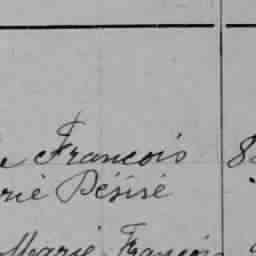 e Francois 8
rie Désiré
Marie François